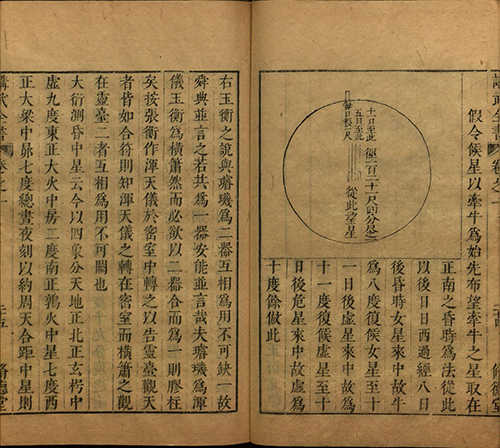 假令候星以牽牛為始先布望牽牛之星取在
每日移一尺
五日至此
從此望星
正南之昏時為法從此
以後日日西過經八日
後昏時女星來中故牛
為八度復候女星至十
一日後虛星來中故為
十一度復候虛星至十
日後危星來中故虛為
十度餘倣此
右玉衡之說與璿璣為二器互相為用不可缺一故
舜典並言之若共為一器安能並言哉夫璿璣為渾
儀玉衡為橫簫然而必欲以二器合而為一則膠柱
矣按張衡作渾天儀於密室中轉之以告靈臺觀天
者皆如合符則知渾天儀之轉在密室而橫簫之觀
在靈臺二者互相為用不可闕也
大衍測昏中星云今以四象分天地正北正玄枵中
虛九度東正大火中房二度南正鶉火中星七度西
正大梁中昴七度總晝夜刻以約周天合距中星則
卷之一